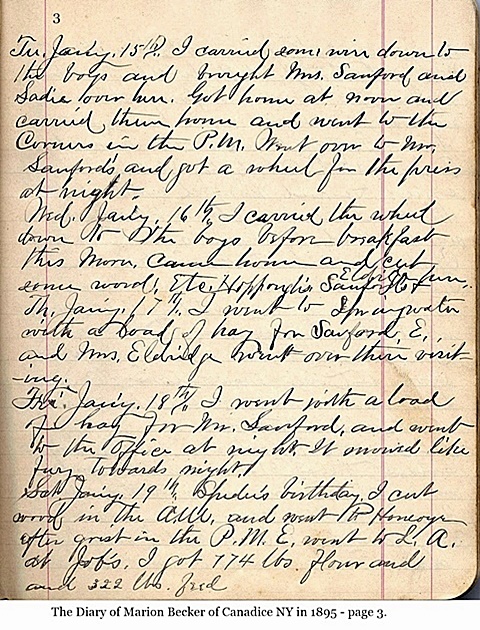 3
Tu. Jan'y. 15th. I carried some wire down to
the boys and brought Mrs. Sanford and
Sadie over here. Got home at noon and
carried them home and went to the
Corners in the P.M. Went over to Mr.
Sanford's and got a wheel for the press
at night.
Wed. Jan'y. 16th, I carried the wheel
down to the boys before breakfast
this Morn. Came home and cut
some wood, Etc. Hoppough's Sanford's &
Eldridge here.
Th. Jan'y. 17th, I went to Springwater
with a load of hay for Sanford, E.
and Mrs. Eldridge went over there visit-
-ing.
Fri. Jan'y. 18th, I went with a load
of hay for Mr. Sanford, and went
to the Office at night. It snowed like
fury towards night.
Sat. Jan'y. 19th, birthday. I cut
wood in the A.M. and went to Honeoye
after grist in the P.M. E. went to L. A.
at Job's. I got 774 lbs. flour and
and 322 lbs. feed
The Diary of Marion Becker of Canadice NY in 1895 - page 3.